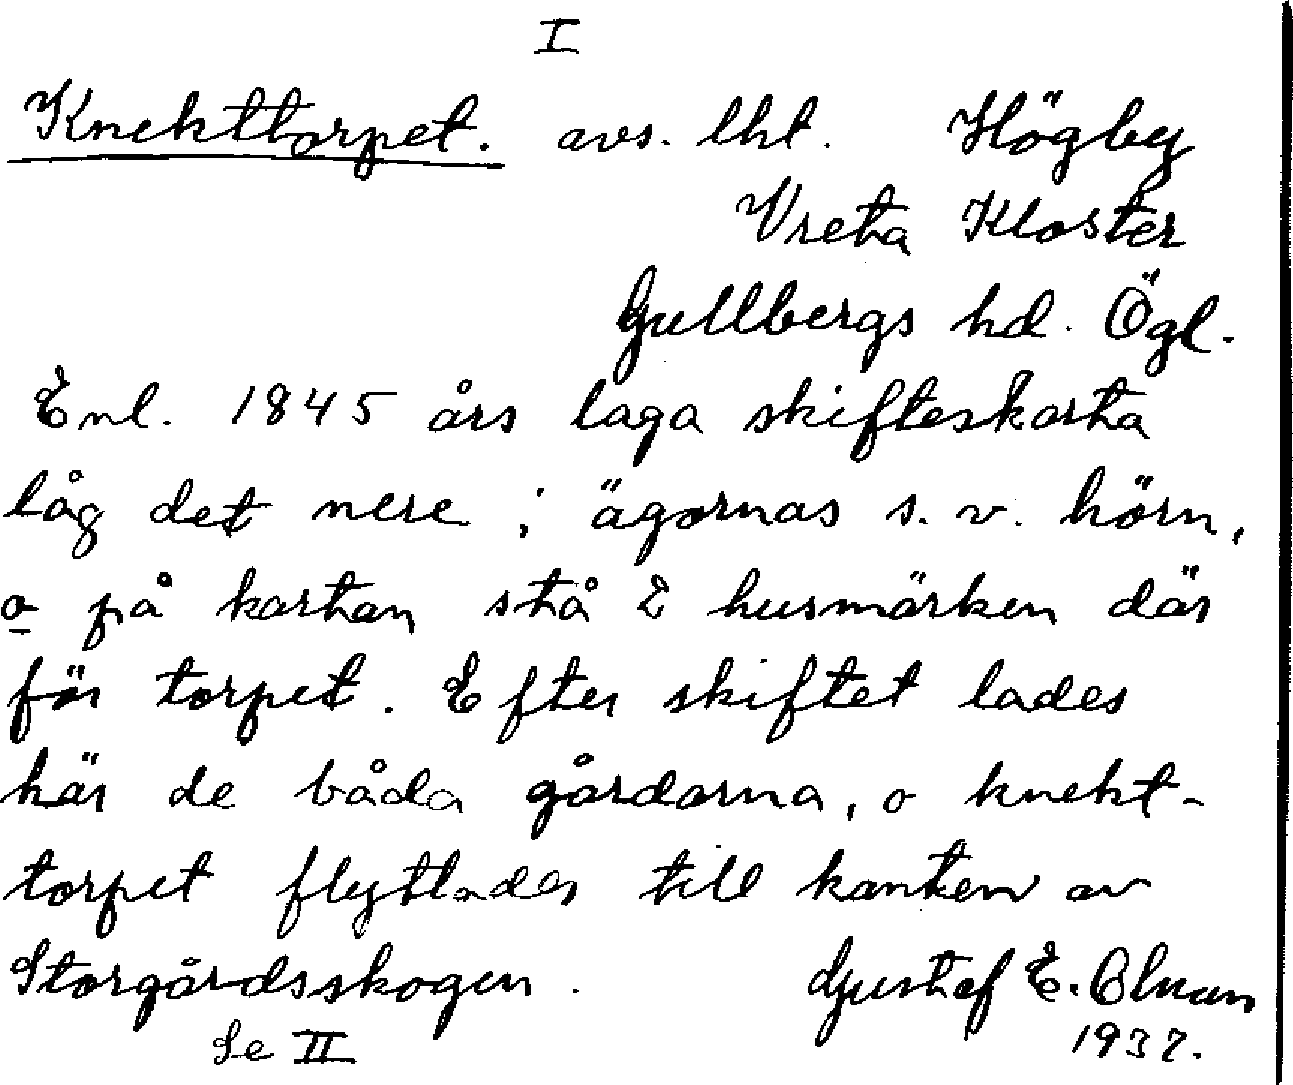 I
Knekttorpet. avs. lht. Högby
Vreta Kloster
Gullbergs hd. Ögl.
Enl. 1845 års laga skifteskarta
låg det nere i ägornas s. v. hörn,
o på kartan stå 2 husmärken där
för torpet. Efter skiftet lades
här de båda gårdarna, o knekt-
torpet flyttades till kanten av
Storgårdsskogen. Gustaf E. Olman
Se II 1937.